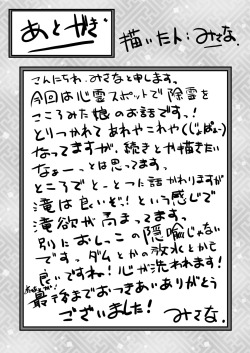 あとがき
描いた人:みさな
こんにちわ、みさなと申します。
今回は心霊スポットで除霊を
こころみた娘のお話です。!
とりつかれてあれやこれや(じゅぽぉー)
なってますが、続きとや描きたい
なぁーっとは思ってます。
ところでとーとつに話かわりますが
滝は良いぞ!!という感じで
滝欲が高まってます。
別におしっこの隠喩じゃない
です。ダムとかの放水とかも
良いですね!心が洗われます!
最後までおつきあいありがとう
ございました!
みさな。